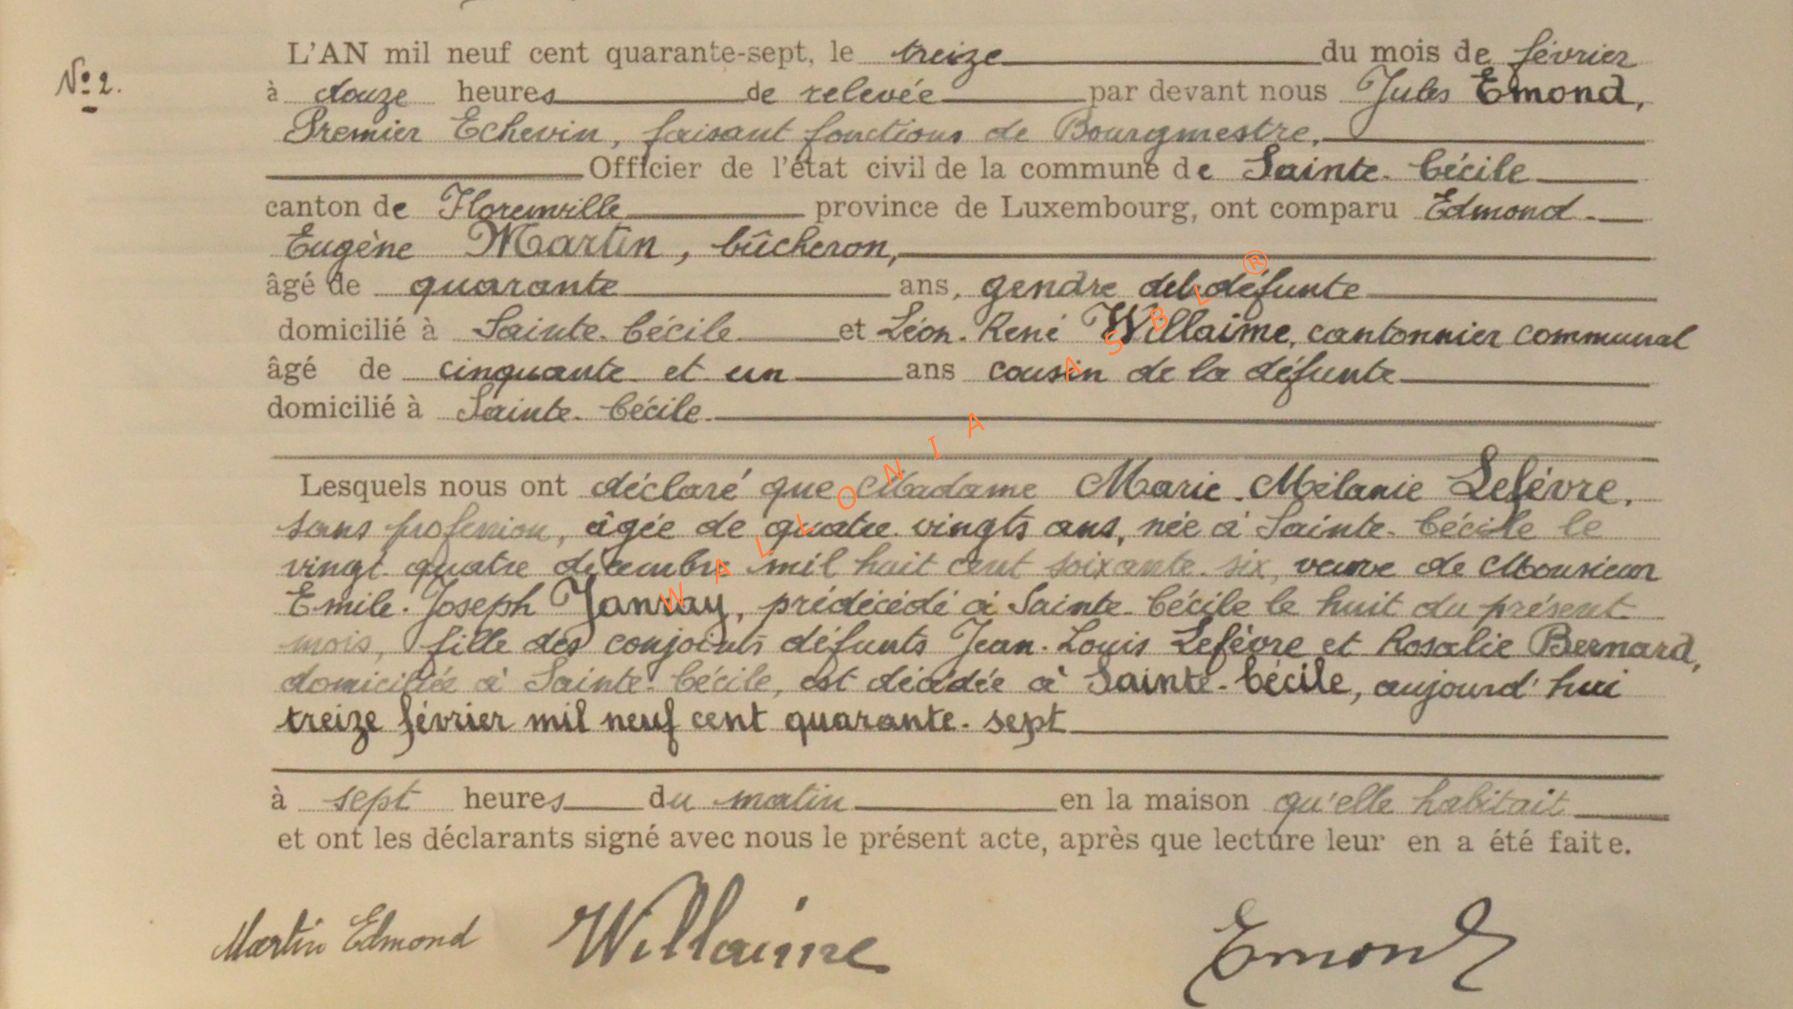 L'AN mil neuf cent quarante-sept, le treize du mois de février
No 2. à douze heures de relevée par devant nous Jules Emond,
Premier Echevin, faisant fonctions de Bourgmestre,
Officier de l'état civil de la commune de Sainte-Cécile
canton de Florenville province de Luxembourg, ont comparu Edmond-
Eugène Martin, bûcheron,
âgé de quarante ans, gendre de la défunte
domicilié à Sainte-Cécile et Léon-René Willaime, cantonnier communal
âgé de cinquante et un ans cousin de la défunte
domicilié à Sainte-Cécile.
Lesquels nous ont déclaré que Madame Marie-Mélanie Lefèvre,
sans profession, âgée de quatre-vingts ans, née à Sainte-Cécile le
vingt-quatre décembre mil huit cent soixante-six, veuve de Monsieur
Emile-Joseph Janvay, prédécédé à Sainte-Cécile le huit du présent
mois, fille des conjoints défunts Jean-Louis Lefèvre et Rosalie Bernard,
domiciliée à Sainte-Cécile, est décédée à Sainte-Cécile, aujourd'hui
treize février mil neuf cent quarante-sept
à sept heures du matin en la maison qu'elle habitait
et ont les déclarants signé avec nous le présent acte, après que lecture leur en a été faite.
Martin Edmond Willaime Emond
WALLONIA ASBL ®